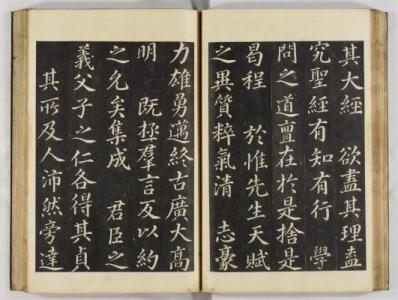 其大經　欲盡其理盍
究聖經有知有行　學
問之道亶在於是捨是
曷程　於惟先生天賦
之異質粹氣清　志豪
力雄勇邁終古廣大高
明　既極羣言反以約
之允矣集成　君臣之
義父子之仁各得其真
其所及人沛然旁達